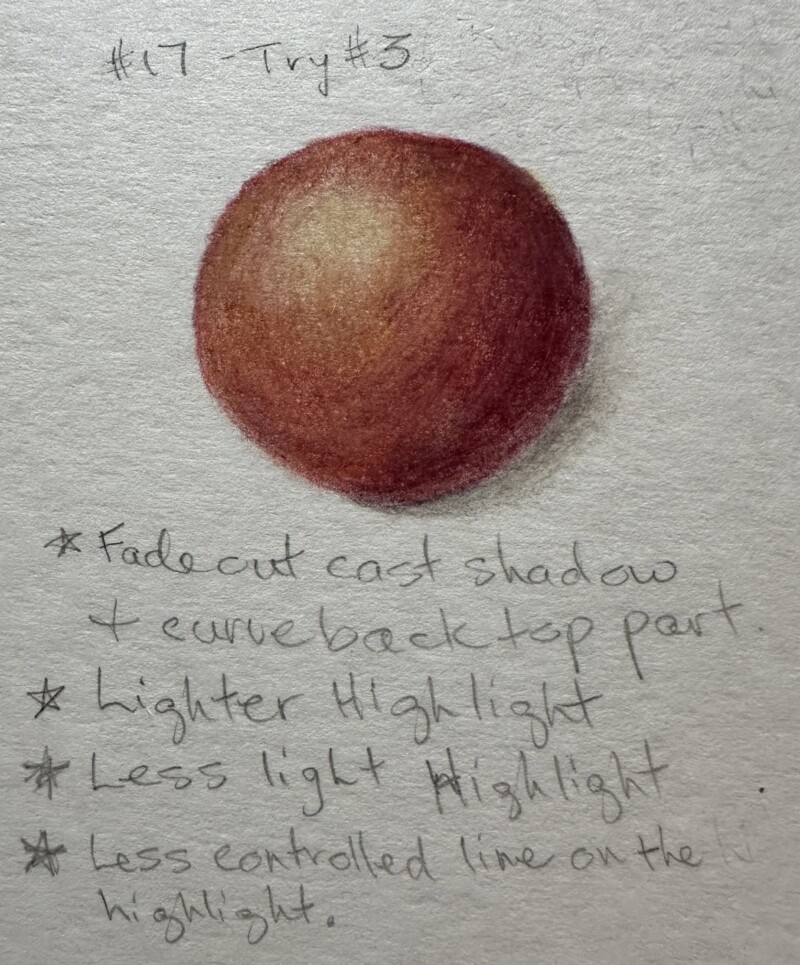 #17 - Try #3
* Fade out cast shadow
+ curve back top part.
* Lighter Highlight
* Less light Highlight
* Less controlled line on the
highlight.